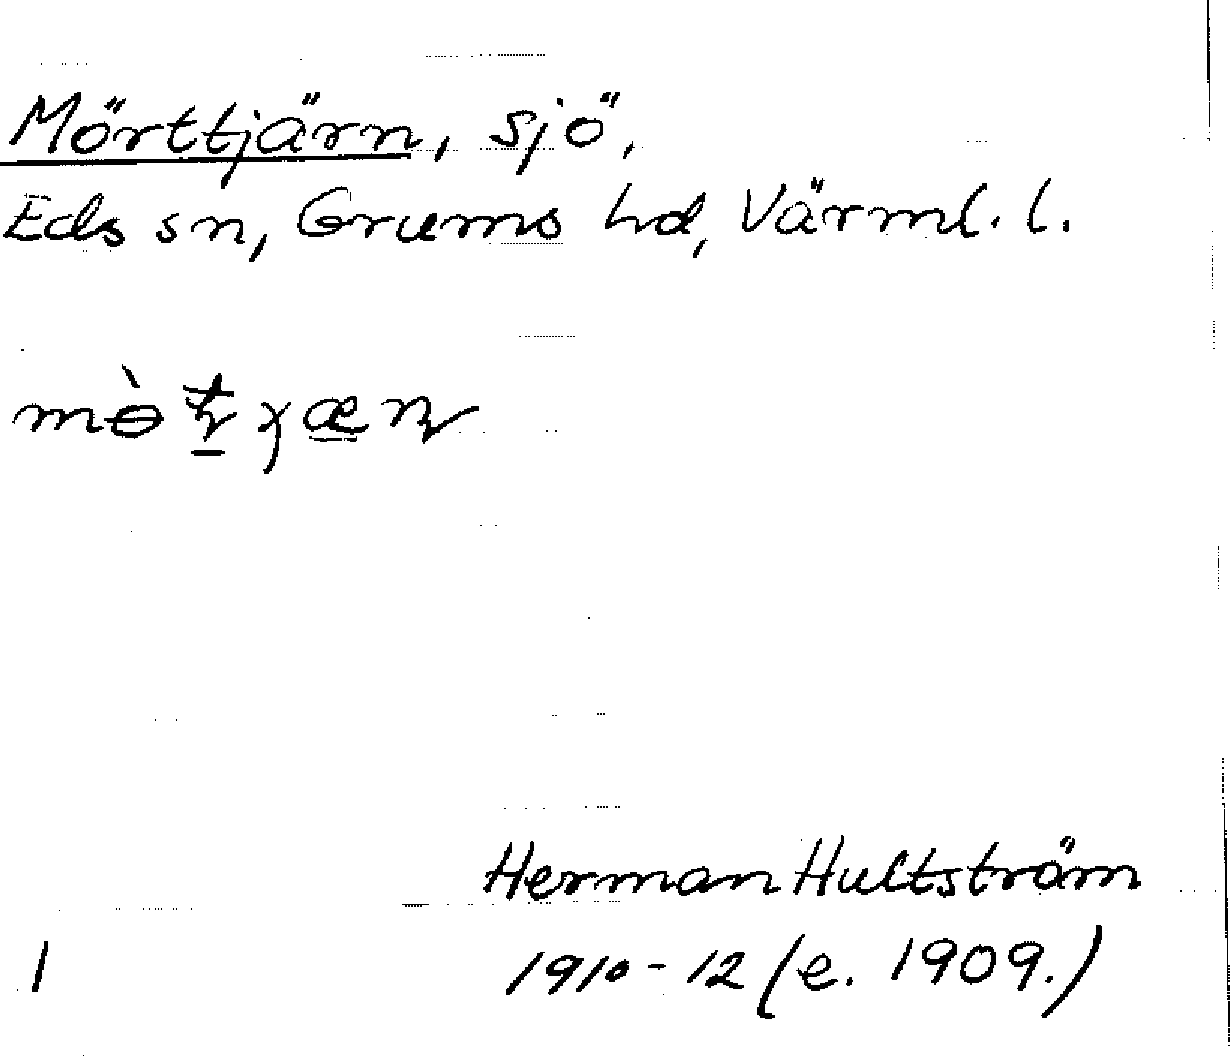 Mörttjärn, sjö,
Eds sn, Grums hd, Värml. l.
mɵ̀ʈ̲ɣæ̲ɳ
Herman Hultström
1 1910-12 (e. 1909.)